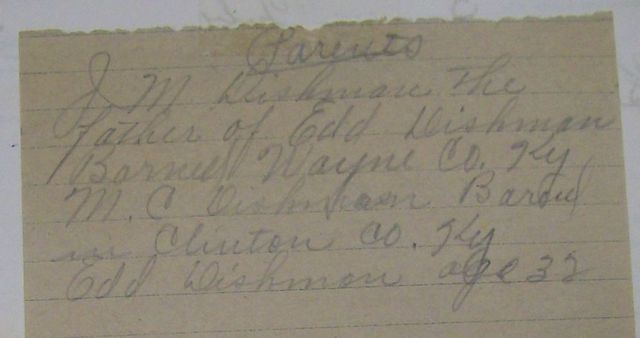 Parents
J. M Dishman The
father of Edd Dishman
Barned Wayne Co. Ky
M. C Dishman Barned
in Clinton Co. Ky
Edd Dishman age 32